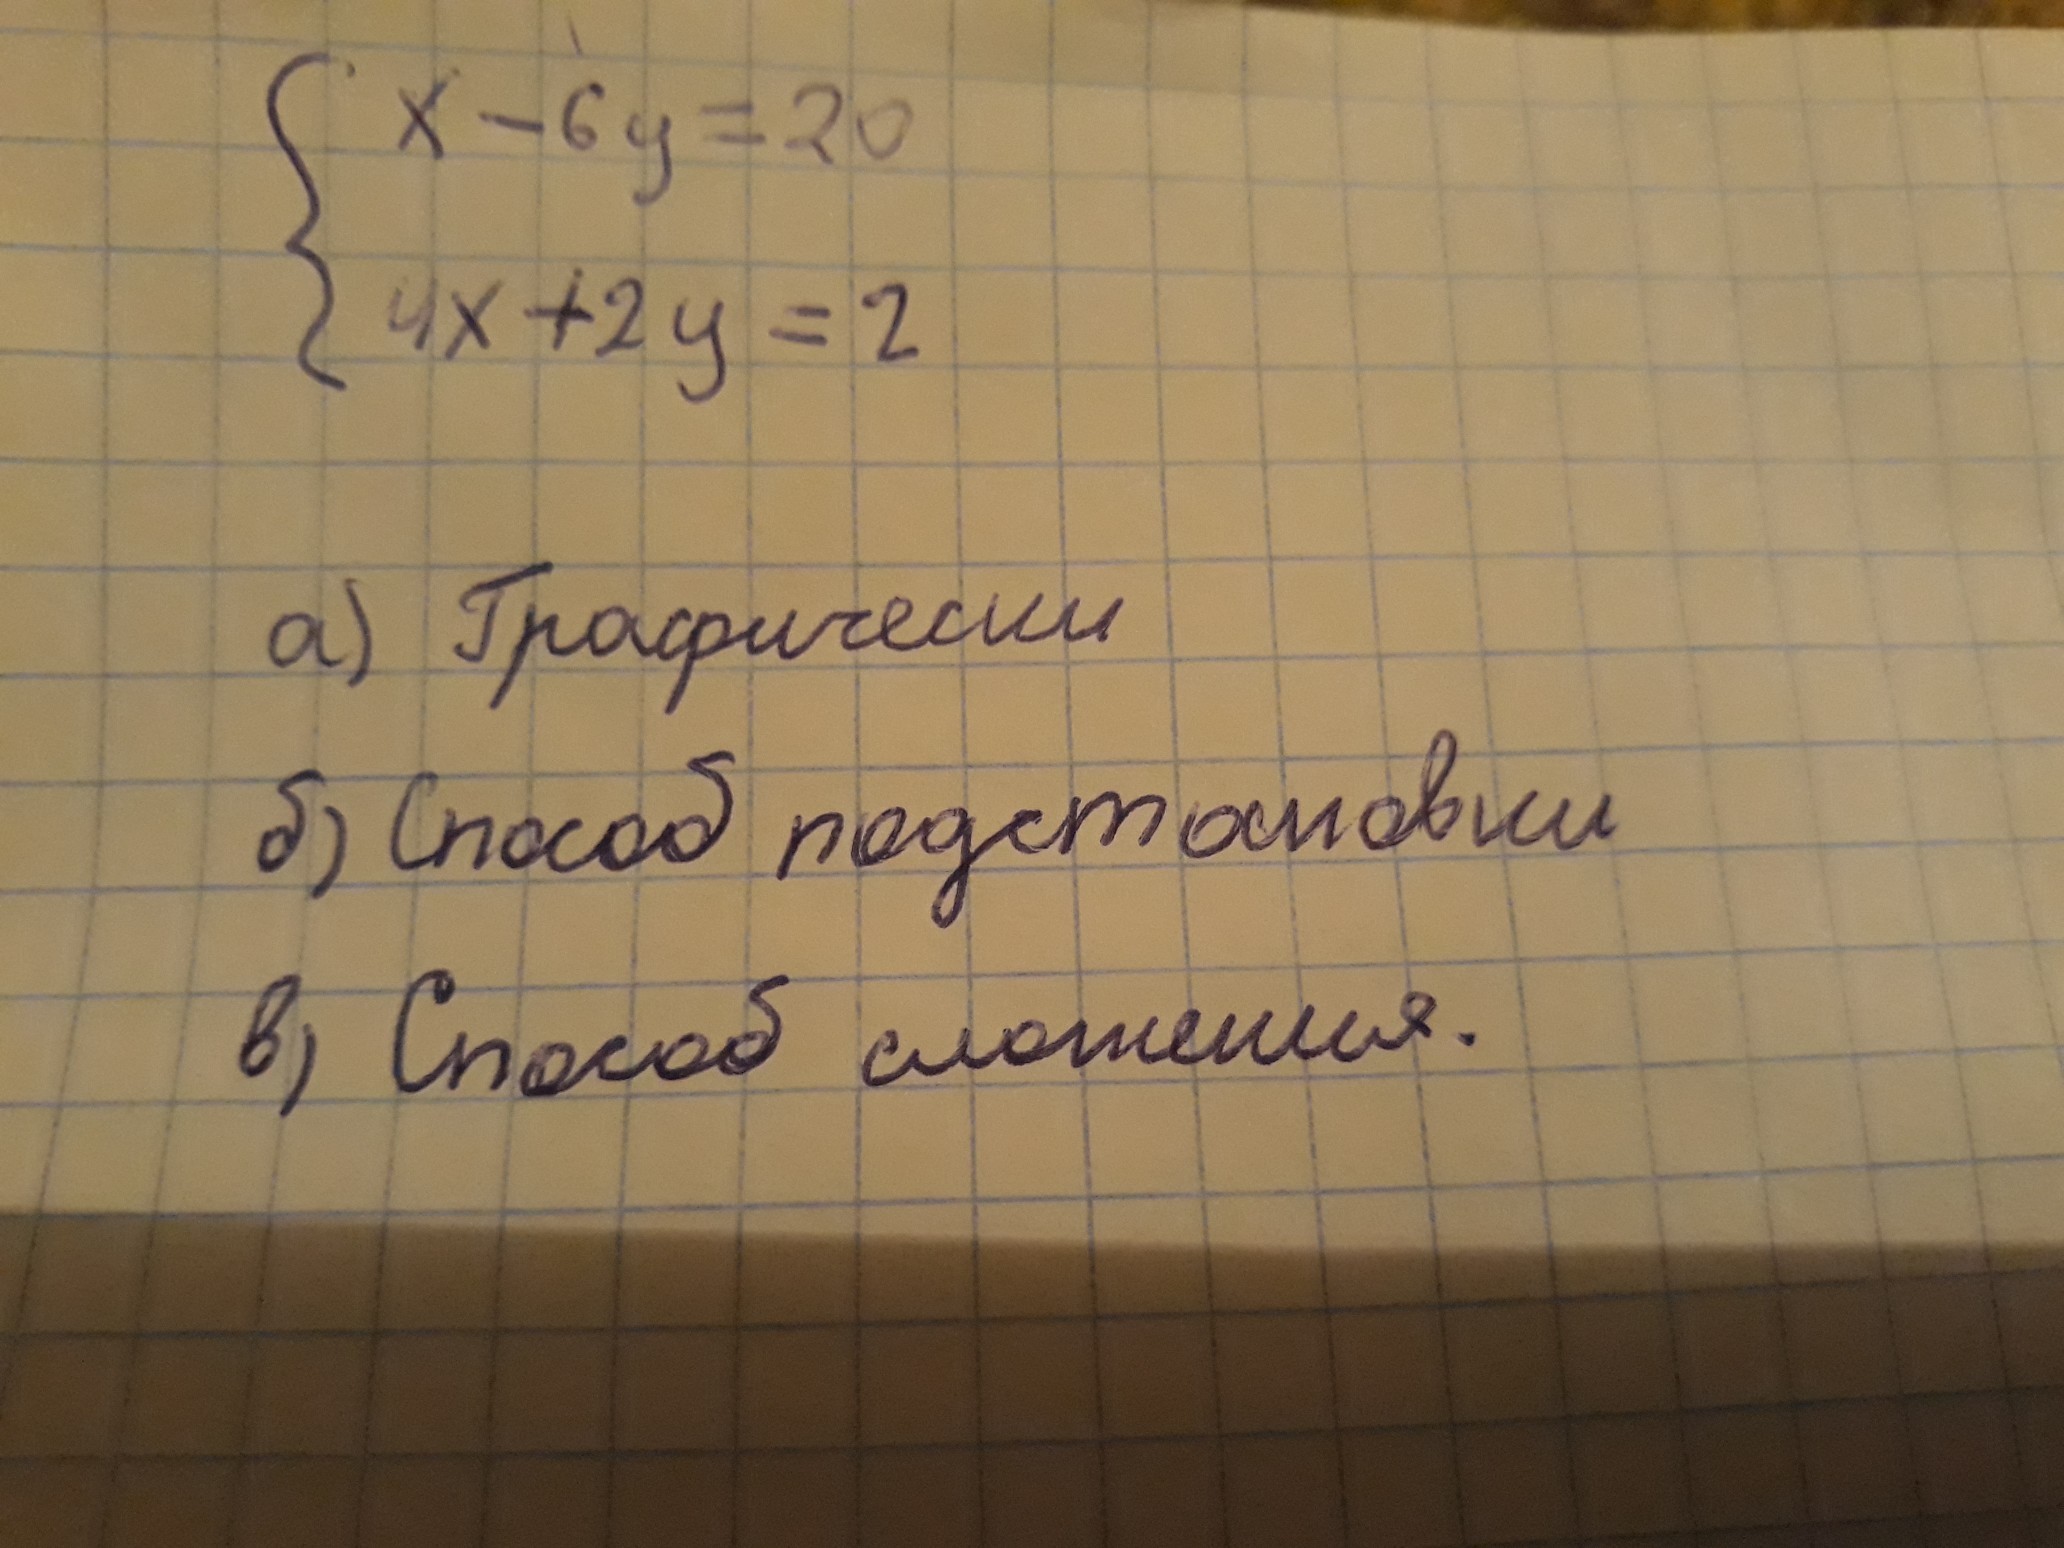 x - 6y = 20
4x + 2y = 2
а) Графически
б) Способ подстановки
в) Способ сложения.